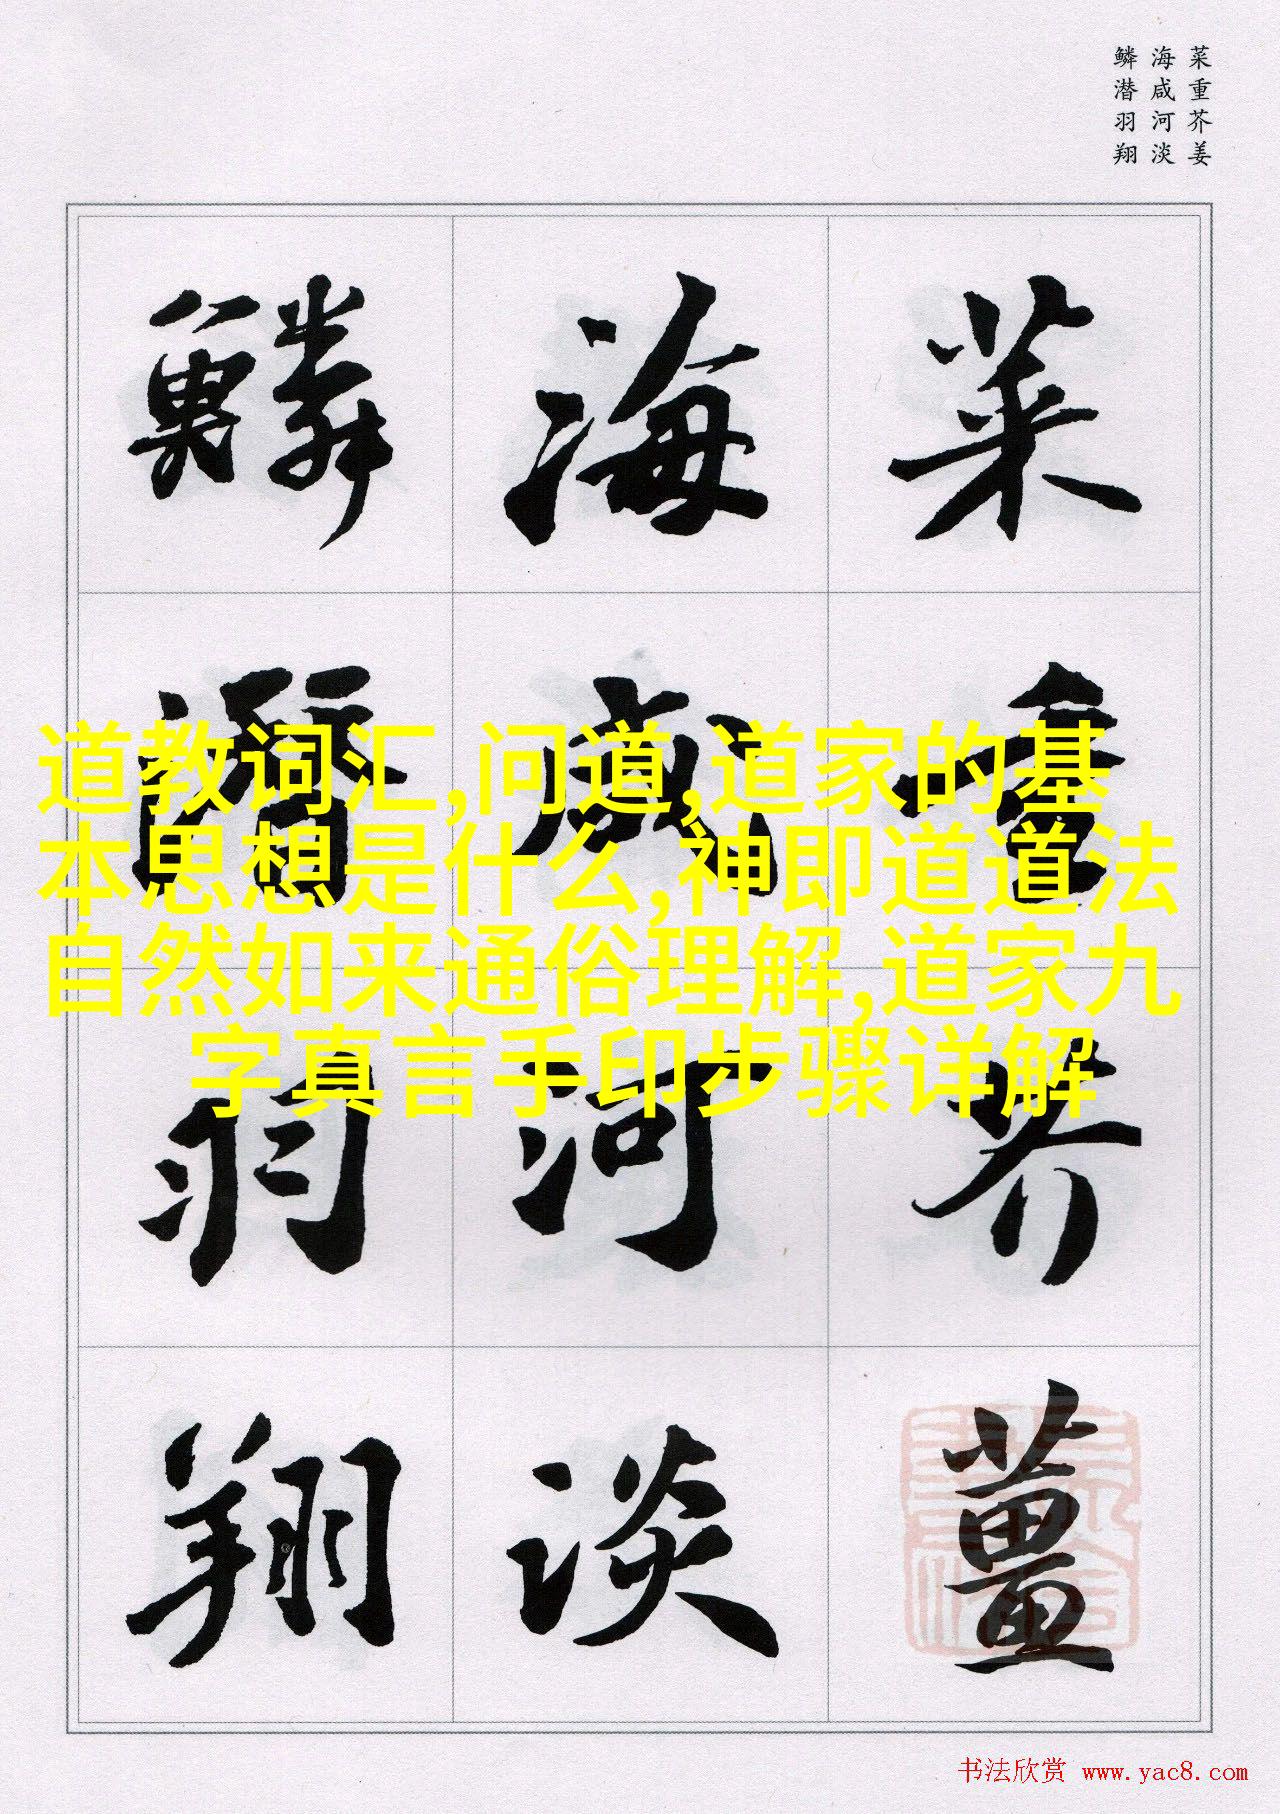 菜重芥姜
海咸河淡
鳞潜羽翔
菜重芥薑
海咸河淡
鱗潛羽翔
道教词汇,问道,道家的基
本思想是什么,神即道道法
自然如来通俗理解,道家九
字真言手印步骤详解
书法欣赏 www.yac8.com